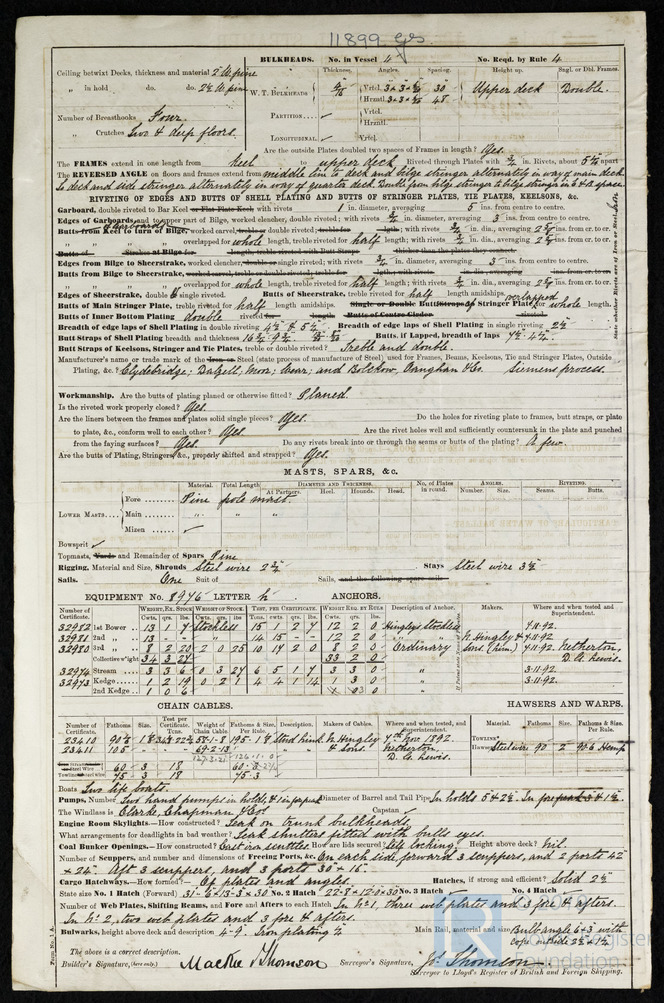 11899 Gls.
BULKHEADS. No. in Vessel 4 No. Reqd. by Rule 4
Ceiling betwixt Decks, thickness and material 2" W. pine
Thickness. Angles. Spacing. Height up. Sngl. or Dbl. Frames.
„ in hold do. do. 2½ W. pine
W. T. BULKHEADS Vrtcl. 30 Upper deck Double.
Hrzntl. 48
Number of Breasthooks Four.
PARTITION Vrtcl.
Hrzntl.
„ Crutches Two & deep floors.
LONGITUDINAL Vrtcl.
Are the outside Plates doubled two spaces of Frames in length? Yes.
The FRAMES extend in one length from keel to upper deck Riveted through Plates with ¾ in. Rivets, about 5¼ apart
The REVERSED ANGLE on floors and frames extend from middle line to deck and bilge stringer alternately in way of main deck.
To deck and side stringer alternately in way of quarter deck. Double from bilge stringer to bilge stringer in
RIVETING OF EDGES AND BUTTS OF SHELL PLATING AND BUTTS OF STRINGER PLATES, TIE PLATES, KEELSONS, &c.
Garboard, double riveted to Bar Keel or Flat Plate Keel with rivets 1 in diameter, averaging 5 ins. from centre to centre.
Edges of Garboards and to upper part of Bilge, worked clencher, double riveted; with rivets ¾ in. diameter, averaging 3 ins. from centre to centre.
Butts from Keel to turn of Bilge, worked carvel, treble or double riveted; treble for lgth; with rivets ¾ in. dia., averaging ins. from cr. to cr.
„ „ „ overlapped for whole length, treble riveted for half length; with rivets ¾ in. dia., averaging ins. fm. cr. to cr.
Edges from Bilge to Sheerstrake, worked clencher, double or single riveted; with rivets ¾ in. diameter, averaging 3 ins. from centre to centre.
Butts from Bilge to Sheerstrake, worked carvel, treble or double riveted; treble for lgth, with rivets in. dia., averaging ins. from cr. to cr.
„ „ overlapped for whole length, treble riveted for half length; with rivets ¾ in. dia., averaging ins. fm. cr. to cr.
Edges of Sheerstrake, double & single riveted. Butts of Sheerstrake, treble riveted for half length amidships.
Butts of Main Stringer Plate, treble riveted for half length amidships. Single or Double Butt Straps of Stringer Plate for whole length.
overlapped
Butts of Inner Bottom Plating double riveted for length. Butts of Centre Girder riveted.
Breadth of edge laps of Shell Plating in double riveting 4½ & 5¼ Breadth of edge laps of Shell Plating in single riveting 2½
Butt Straps of Shell Plating breadth and thickness Butts, if Lapped, breadth of laps
Butt Straps of Keelsons, Stringer and Tie Plates, treble or double riveted? Treble and double.
Manufacturer's name or trade mark of the Iron or Steel (state process of manufacture of Steel) used for Frames, Beams, Keelsons, Tie and Stringer Plates, Outside
Plating, &c.? Clydebridge; Dalzell; Mossend; and Bolckow, Vaughan & Co. Siemens process.
Workmanship. Are the butts of plating planed or otherwise fitted? Planed.
Is the riveted work properly closed? Yes.
Are the liners between the frames and plates solid single pieces? Yes. Do the holes for riveting plate to frames, butt straps, or plate
to plate, &c., conform well to each other? Yes. Are the rivet holes well and sufficiently countersunk in the plate and punched
from the faying surfaces? Yes. Do any rivets break into or through the seams or butts of the plating? A few.
Are the butts of Plating, Stringers, &c., properly shifted and strapped? Yes.
MASTS, SPARS, &c.
Material. Total Length DIAMETER AND THICKNESS. No. of Plates in round. ANGLES. RIVETING.
At Partners. Heel. Hounds. Head. Number. Size. Seams. Butts.
LOWER MASTS Fore Pine pole mast.
Main „ „ „
Mizen
Bowsprit
Topmasts, Yards and Remainder of Spars Pine
Rigging, Material and Size, Shrouds Steel wire 2¾ Stays Steel wire 3½
Sails. One Suit of Sails, and the following spare sails
EQUIPMENT No. 8976 LETTER h ANCHORS.
Number of Certificate. WEIGHT, EX. STOCK WEIGHT OF STOCK. TEST, PER CERTIFICATE. WEIGHT REQ. BY RULE. Description of Anchor. Makers. Where and when tested and Superintendent.
Cwts. qrs. lbs. Cwts. qrs. lbs. Tons. cwts. qrs. lbs. Cwts. qrs. lbs.
32982 1st Bower 13 1 7 Stockless 15 1 2 7 12 2 0 Hingleys Stockless 7-11-92.
32981 2nd „ 13 - - „ 14 15 - - 12 2 0 N. Hingley & 4-11-92.
32980 3rd „ 8 2 20 2 0 25 10 17 2 0 8 2 0 Ordinary Sons. (Lim.) 7-11-92. Netherton,
Collective weight 34 3 27 33 2 0 D. G. Lewis.
32974 Stream 3 3 6 0 3 27 6 5 1 7 3 3 0 „ 3-11-92.
32973 Kedge 1 2 19 0 2 1 4 4 1 14 1 3 0 „ 3-11-92.
2nd Kedge 1 0 6 „
CHAIN CABLES. HAWSERS AND WARPS.
Number of Certificate. Fathoms Size. Test per Certificate. Tons. Weight of Chain Cable Fathoms & Size. Per Rule. Description. Makers of Cables. Where and when tested, and Superintendent. Material. Fathoms Size. Fathoms & Size. Per Rule.
23410 58-1-8 195-1 Stud link N. Hingley 7th Nov. 1892.
23411 105 69-2-13 & Sons. Netherton. Steel wire 90 2 90 6 Hemp
127-3-21 D. G. Lewis.
60 3 18
Towline, steel wire 75 3 18 75-3
Boats Two life boats.
Pumps, Number Two hand pumps in holds, & 1 in forepeak Diameter of Barrel and Tail Pipe In holds 5 & 2½. In forepeak
The Windlass is Clarke, Chapman & Co's Capstan
Engine Room Skylights.—How constructed? Teak on trunk bulkheads.
What arrangements for deadlights in bad weather? Teak shutters fitted with bulls eyes.
Coal Bunker Openings.—How constructed? Cast iron scuttles How are lids secured? Self locking. Height above deck? Nil.
Number of Scuppers, and number and dimensions of Freeing Ports, &c. On each side forward 3 scuppers, and 2 ports 42
× 24. Aft 3 scuppers, and 3 ports 30 × 15.
Cargo Hatchways.—How formed? Of plates and angles. Hatches, if strong and efficient? Solid 2½
State size No. 1 Hatch (Forward) 31-6 × 13-3 × 30 No. 2 Hatch 22-8 × 12-0 × 30 No. 3 Hatch No. 4 Hatch
Number of Web Plates, Shifting Beams, and Fore and Afters to each Hatch In No. 1, three web plates and 3 fore & afters.
In No. 2, two web plates and 3 fore & afters.
Bulwarks, height above deck and description 4-9. Iron plating ¼ Main Rail, material and size Bulb angle 6 × 3 with
cope outside
The above is a correct description.
Builder's Signature, (here only.) Mackie & Thomson Surveyor's Signature, Js. Thomson
Surveyor to Lloyd's Register of British and Foreign Shipping.
Form No. 1 A.
Lloyd's Register
Foundation